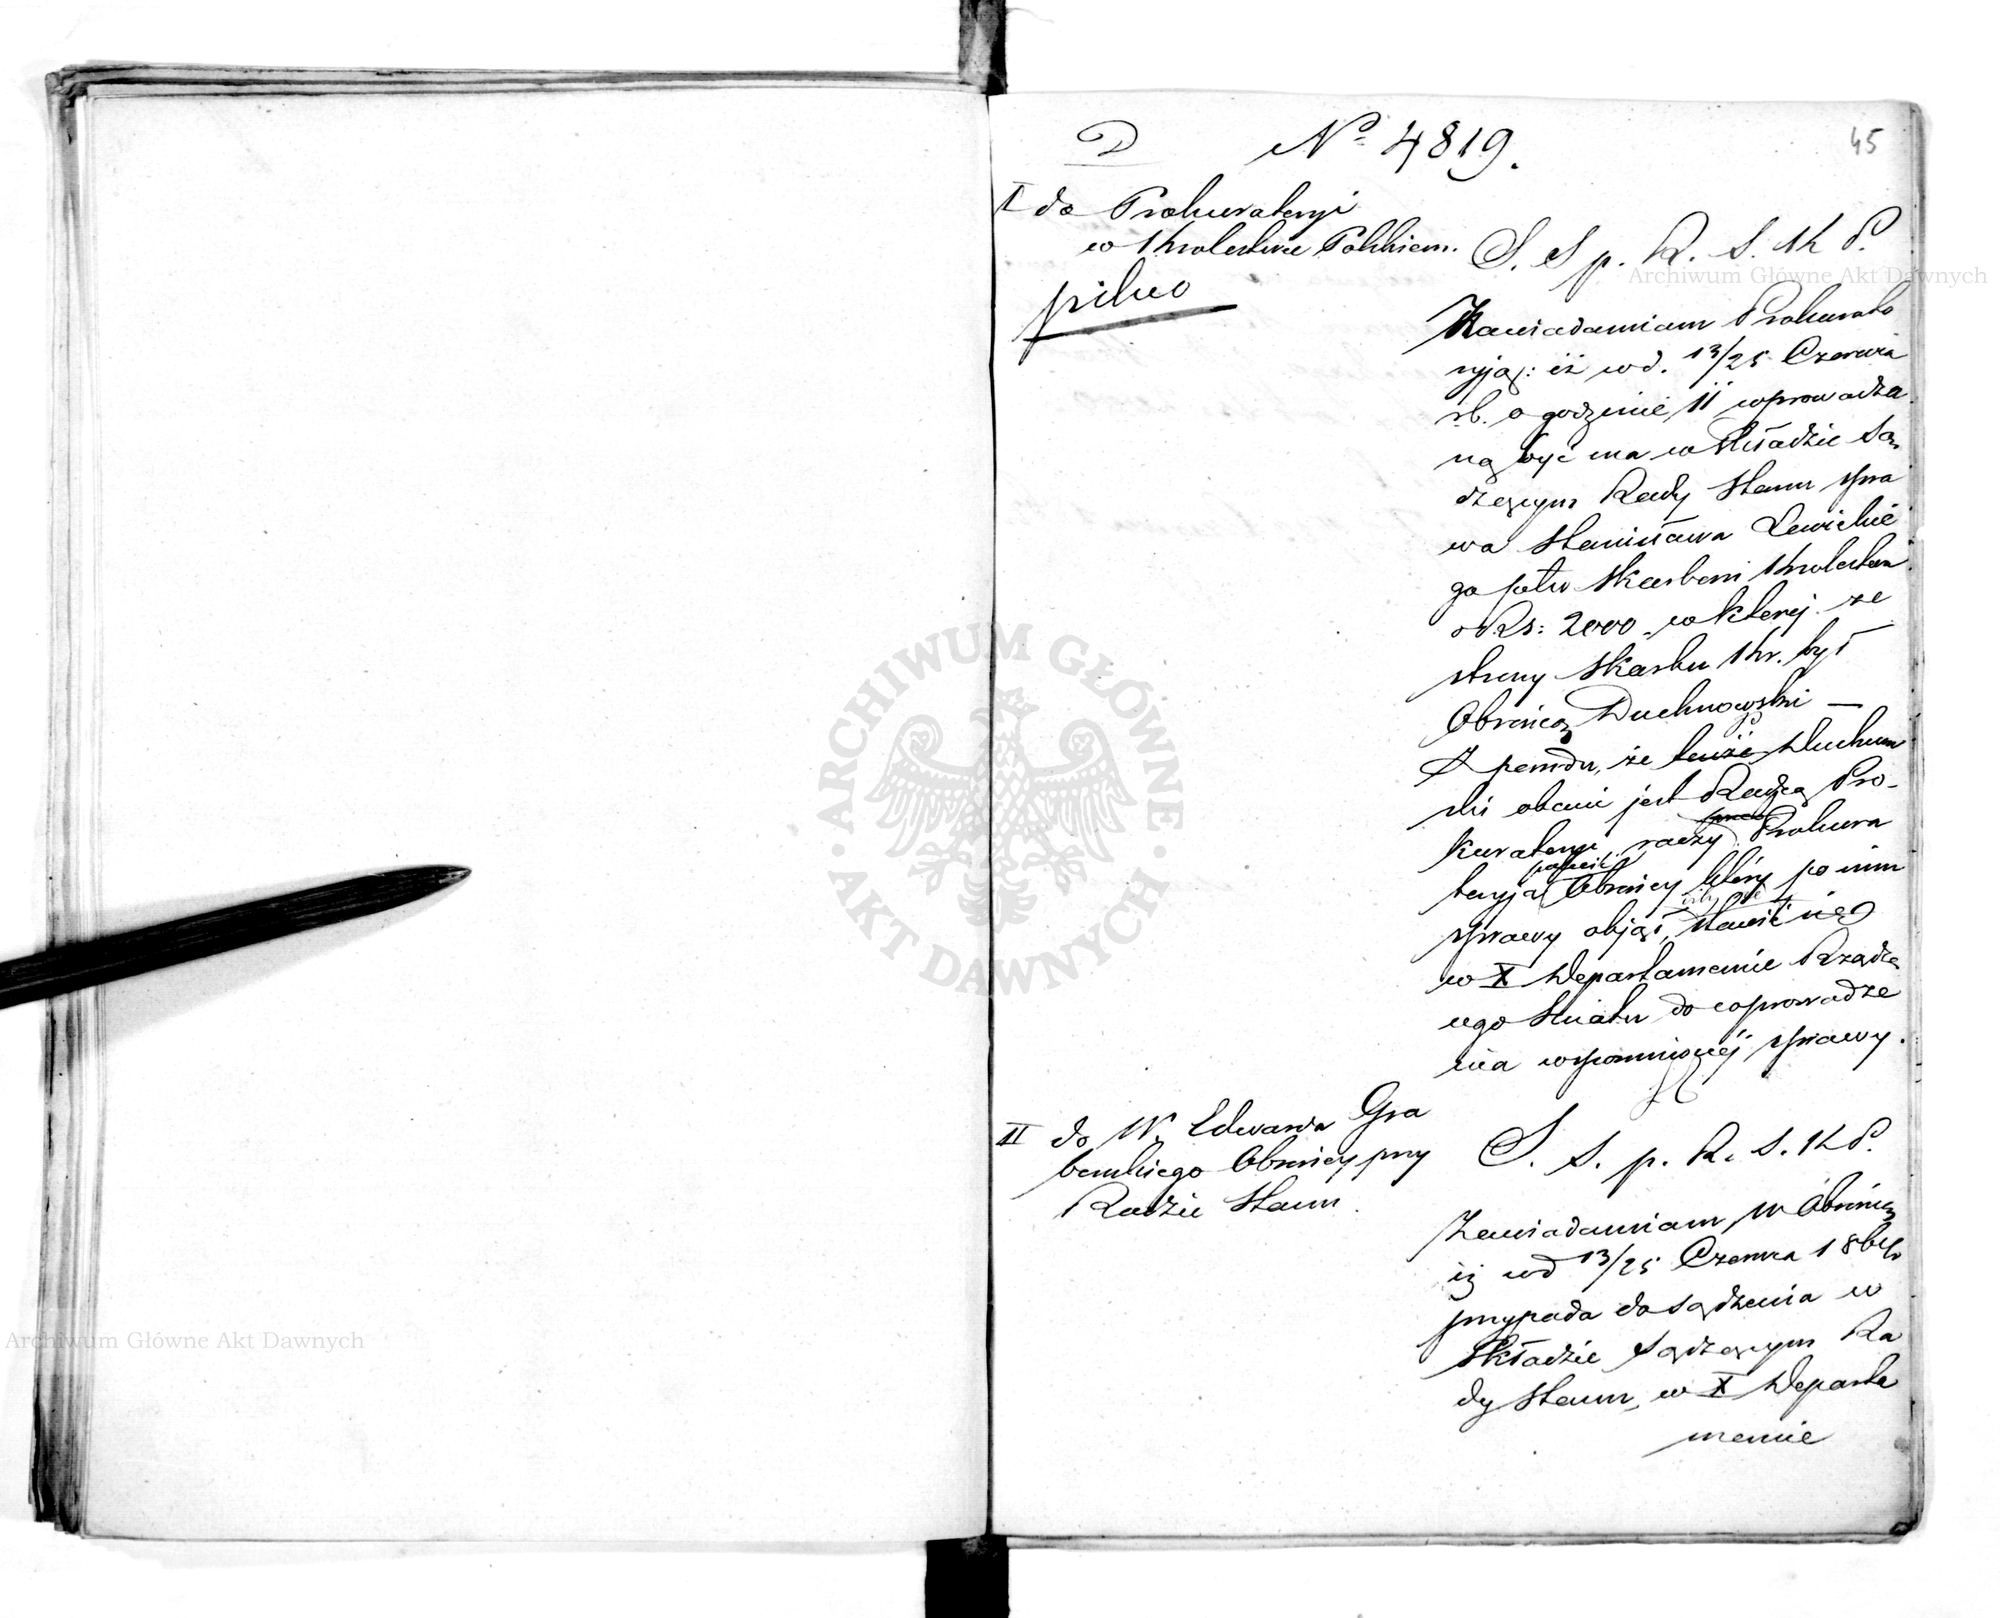 D N° 4819.
45
I do Prokuratoryi
w Królestwie Polskiem.
pilno
S. S p. R. S. K P.
Zawiadamiam Prokurato
ryją: iż w d. 13/25 Czerwca
rb. o godzinie 11 wprowadzo
ną być ma w Składzie Są
dzącym Rady Stanu spra
wa Stanisława Lewickie
go pko Skarbowi Królestwa
o Rs: 2000 w której ze
strony Skarbu Kr. był
Obrońcą Duchnowski —
Z powodu, że tenże Duchnow
ski obecnie jest Radcą Pro-
kuratoryi, raczy Prokura
toryja polecić Obrońcy który po nim
sprawy objął, iżby się stawił
w X Departamencie Rządzą
cego Senatu do wprowadze
nia wspomnionej sprawy.
II do W. Edwarda Gra
bowskiego Obrońcy przy
Radzie Stanu.
S. S. p. R. S. K P.
Zawiadamiam W Obrońcę
iż w d 13/25 Czerwca
przypada do sądzenia w
Składzie Sądzącym Ra
dy Stanu, w X Departa
mencie
ARCHIWUM GŁÓWNE
AKT DAWNYCH
Archiwum Główne Akt Dawnych
Archiwum Główne Akt Dawnych